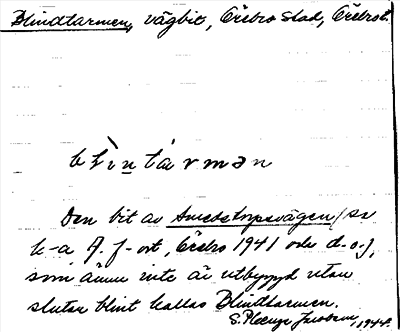 Blindtarmen, vägbit, Örebro stad, Örebro l.
blìntármən
Den bit av Smedstorpsvägen (se
k-a f-ort, Örebro 1941 och d.o.),
som ännu inte är utbyggd utan
slutar blint kallas Blindtarmen.
S. 1948.